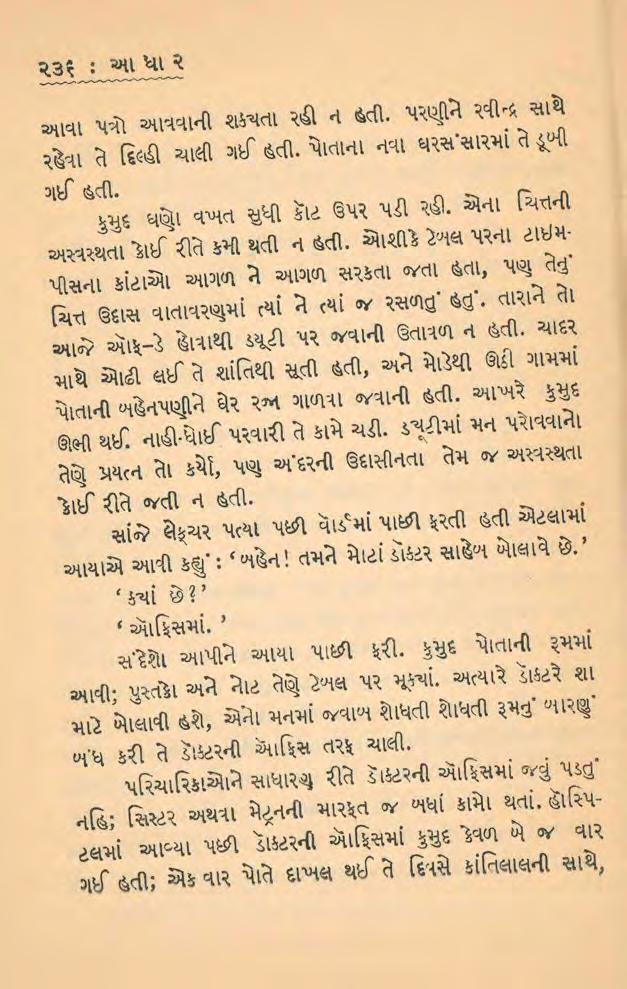 ૨૩૬ : આ ધા ર
આવા પત્રો આવવાની શક્યતા રહી ન હતી. પરણીને રવીન્દ્ર સાથે
રહેવા તે દિલ્હી ચાલી ગઈ હતી. પોતાના નવા ઘરસંસારમાં તે ડૂબી
ગઈ હતી.
કુમુદ ઘણો વખત સુધી કૉટ ઉપર પડી રહી. એના ચિત્તની
અસ્વસ્થતા કોઈ રીતે કમી થતી ન હતી. ઓશીકે ટેબલ પરના ટાઇમ-
પીસના કાંટાઓ આગળ ને આગળ સરકતા જતા હતા, પણ તેનું
ચિત્ત ઉદાસ વાતાવરણમાં ત્યાં ને ત્યાં જ રસળતું હતું. તારાને તો
આજે ઑફ–ડે હોવાથી ડ્યૂટી પર જવાની ઉતાવળ ન હતી. ચાદર
માથે ઓઢી લઈ તે શાંતિથી સૂતી હતી, અને મોડેથી ઊઠી ગામમાં
પોતાની બહેનપણીને ઘેર રજા ગાળવા જવાની હતી. આખરે કુમુદ
ઊભી થઈ. નાહી-ધોઈ પરવારી તે કામે ચડી. ડ્યૂટીમાં મન પરોવવાનો
તેણે પ્રયત્ન તો કર્યો, પણ અંદરની ઉદાસીનતા તેમ જ અસ્વસ્થતા
કોઈ રીતે જતી ન હતી.
સાંજે લેક્ચર પત્યા પછી વૉર્ડમાં પાછી ફરતી હતી એટલામાં
આયાએ આવી કહ્યું : ‘બહેન! તમને મોટાં ડૉક્ટર સાહેબ બોલાવે છે.’
‘ ક્યાં છે?’
‘ ઑફિસમાં. ’
સંદેશો આપીને આયા પાછી ફરી. કુમુદ પોતાની રૂમમાં
આવી; પુસ્તકો અને નોટ તેણે ટેબલ પર મૂક્યાં. અત્યારે ડૉક્ટરે શા
માટે બોલાવી હશે, એનો મનમાં જવાબ શોધતી શોધતી રૂમનું બારણું
બંધ કરી તે ડૉક્ટરની ઑફિસ તરફ ચાલી.
પરિચારિકાઓને સાધારણ રીતે ડૉક્ટરની ઑફિસમાં જવું પડતું
નહિ; સિસ્ટર અથવા મેટ્રનની મારફત જ બધાં કામો થતાં. હૉસ્પિ-
ટલમાં આવ્યા પછી ડૉક્ટરની ઑફિસમાં કુમુદ કેવળ બે જ વાર
ગઈ હતી; એક વાર પોતે દાખલ થઈ તે દિવસે કાંતિલાલની સાથે,